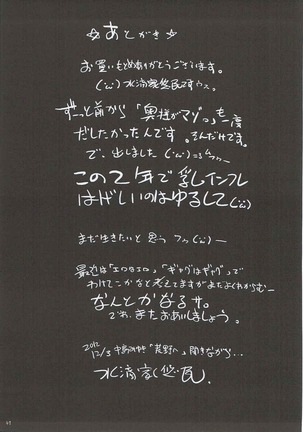 ☆あとがき☆
お買いもとめありがとうございます。
(・ω・)水滴家悠民ですぅ。
ずっと前から「奥様がマゾっ」も一度
だしたかったんです。そんだけです。
で、出しました(・ω・)
この2年で乳インフレ
はげしいのはゆるして(・ω・)
まだ生きたいと思う
最近は「エロはエロ」「ギャグはギャグ」で
わけてこかなと考えてますがまだよくわからむー
なんとかなるサ。
でわ、またおあいしましょう。
2012
12/3 中島みゆき「荒野へ」聞きながら…